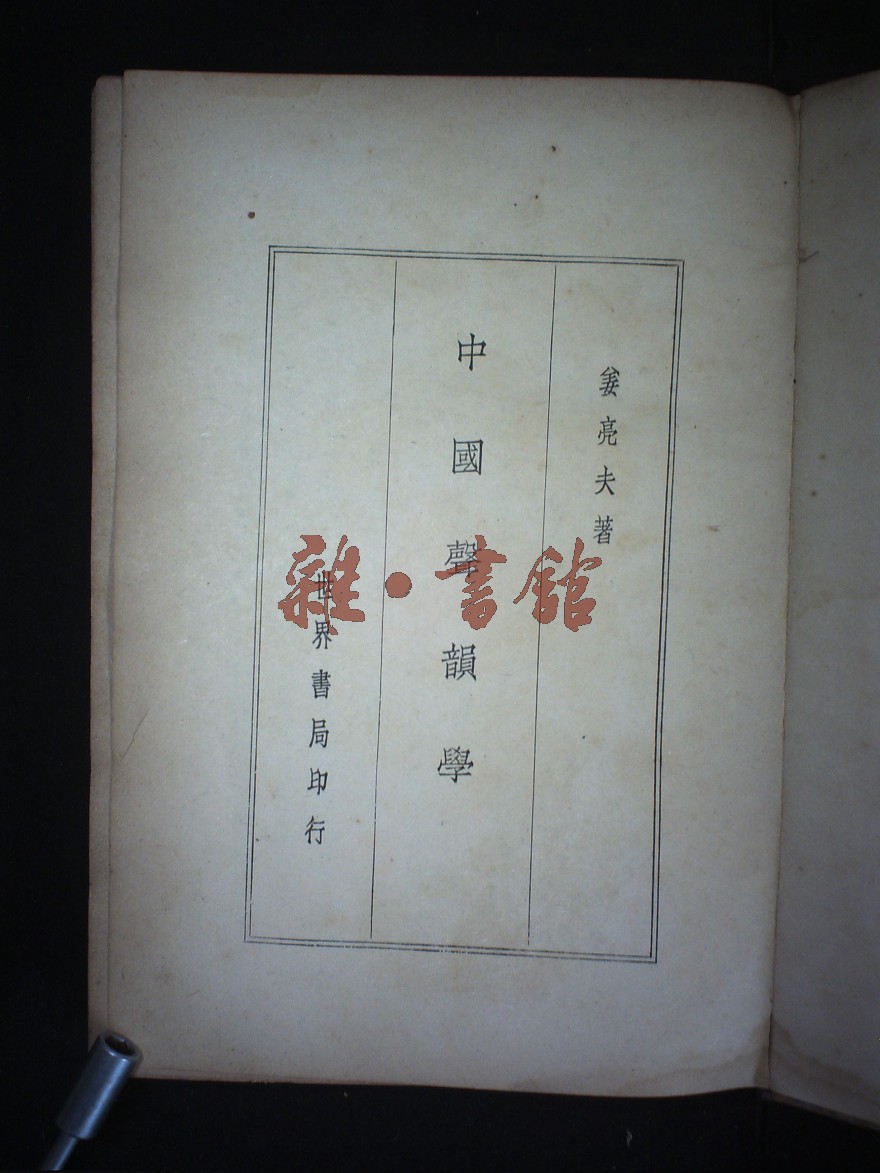 姜亮夫著
中國聲韻學
世界書局印行
雜·書館